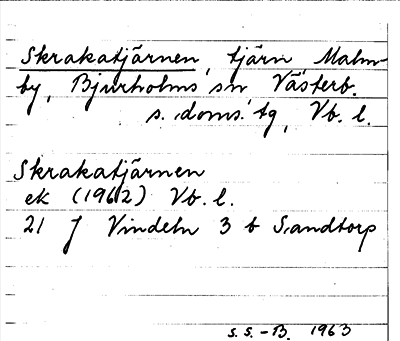 Skrakatjärnen, tjärn, Malm-
by, Bjurholms sn Västerb.
s. doms. tg, Vb. l.
Skrakatjärnen
ek (1962) Vb. l.
21 J Vindeln 3 b Sandtorp
S. S. - B. 1963